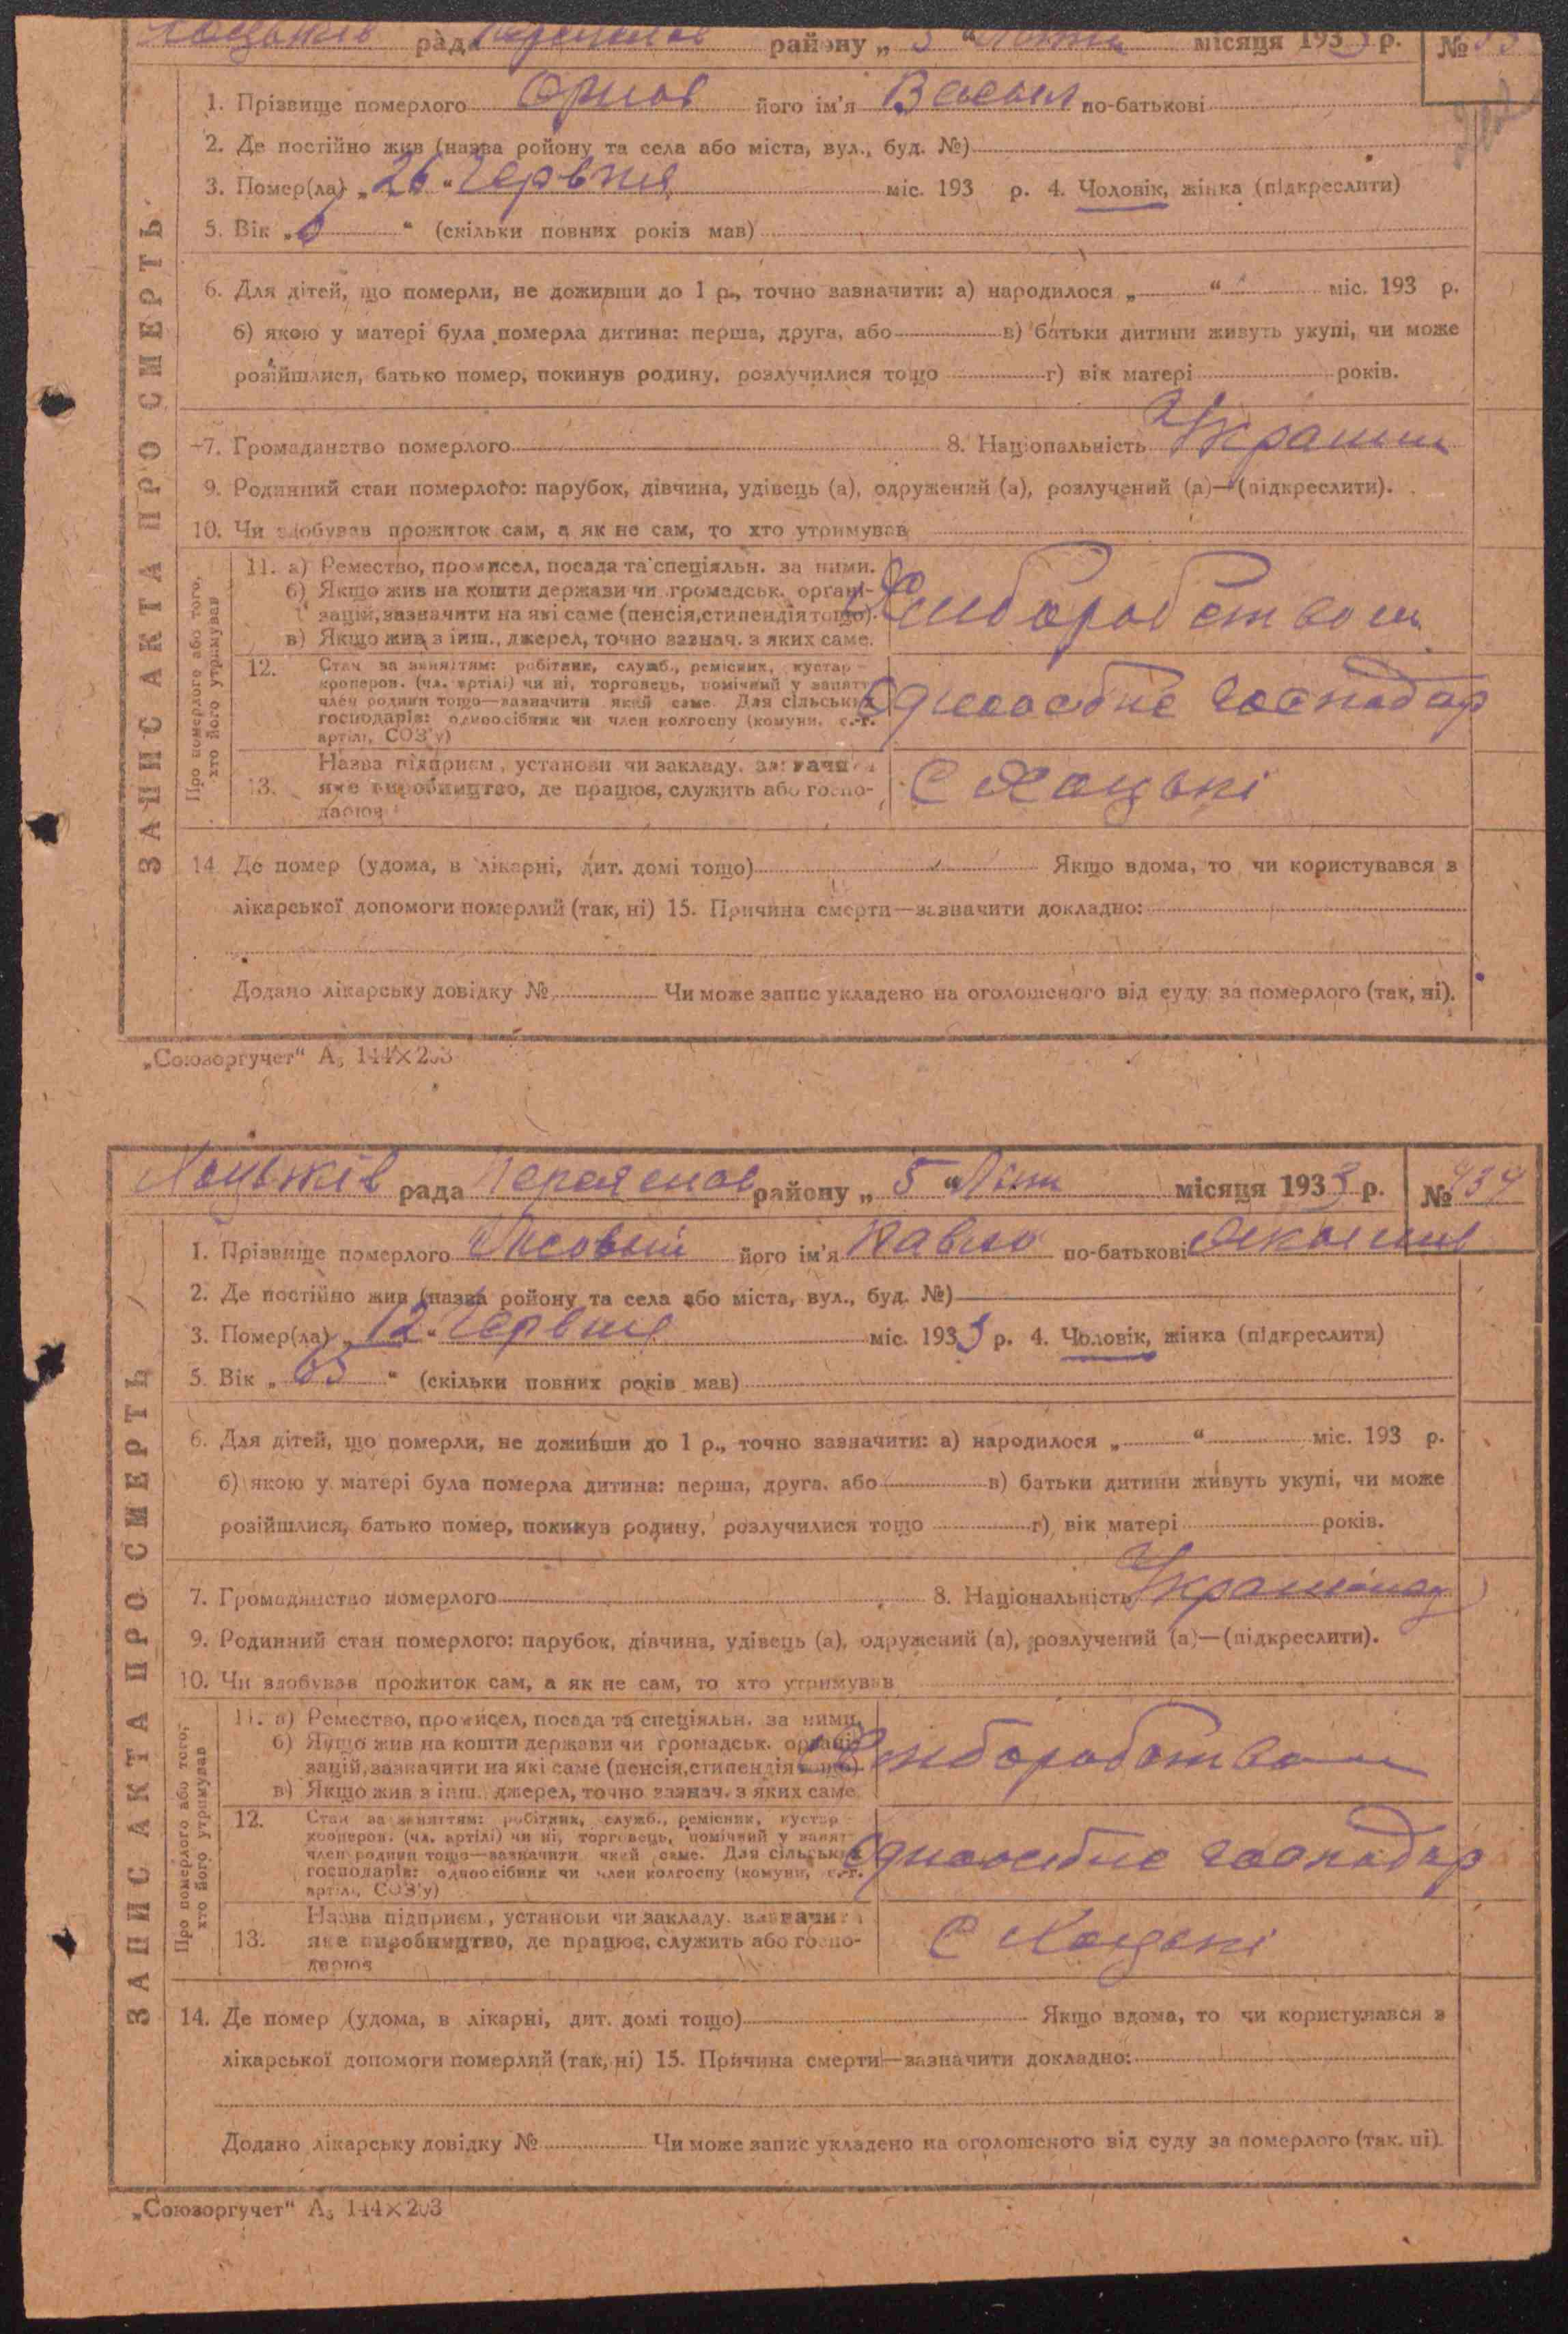 Хоцьків рада Переяслов району „ 5 “ Липня місяця 1933 р. №
1. Прізвище померлого Орлов його ім'я Василь по-батькові
2. Де постійно жив (назва ройону та села або міста, вул., буд. №)
3. Помер(ла) „ 26 “ Червня міс. 193 р. 4. Чоловік, жінка (підкреслити)
5. Вік „ 6 “ (скільки повних років мав)
6. Для дітей, що померли, не доживши до 1 р., точно зазначити: а) народилося „ “ міс. 193 р.
б) якою у матері була померла дитина: перша, друга, або в) батьки дитини живуть укупі, чи може
розійшлися, батько помер, покинув родину, розлучилися тощо г) вік матері років.
7. Громадянство померлого 8. Національність Украин
9. Родинний стан померлого: парубок, дівчина, удівець (а), одружений (а), розлучений (а)—(підкреслити).
10. Чи здобував прожиток сам, а як не сам, то хто утримував
ЗАПИС АКТА ПРО СМЕРТЬ
Про померлого або того, хто його утримував
11. а) Ремество, промисел, посада та спеціяльн. за ними.
б) Якщо жив на кошти держави чи громадськ. органі-
зацій, зазначити на які саме (пенсія, стипендія тощо).
в) Якщо жив з інш., джерел, точно зазнач. з яких саме.
Хлиборобством
12. Стан за заняттям: робітник, служб., ремісник, кустар
кооперов. (чл. артілі) чи ні, торговець, помічний у занятт
член родини тощо—зазначити який саме. Для сільськ
господарів: одноосібник чи член колгоспу (комуни, с.-г.
артілі, СОЗ'у)
Одноособне господар
13. Назва підприєм., установи чи закладу, зазначи
яке виробництво, де працює, служить або госпо-
дарює
С Хоцькі
14. Де помер (удома, в лікарні, дит. домі тощо) Якщо вдома, то чи користувався з
лікарської допомоги померлий (так, ні) 15. Причина смерти—зазначити докладно:
Додано лікарську довідку № Чи може запис укладено на оголошеного від суду за померлого (так, ні).
„Союзоргучет“ А₅ 144×203
Хоцьків рада Переяслов району „ 5 “ Липн місяця 1933 р. № 434
1. Прізвище померлого його ім'я Павло по-батькові
2. Де постійно жив (назва ройону та села або міста, вул., буд. №)
3. Помер(ла) „ 12 “ Червня міс. 1933 р. 4. Чоловік, жінка (підкреслити)
5. Вік „ 65 “ (скільки повних років мав)
6. Для дітей, що померли, не доживши до 1 р., точно зазначити: а) народилося „ “ міс. 193 р.
б) якою у матері була померла дитина: перша, друга, або в) батьки дитини живуть укупі, чи може
розійшлися, батько помер, покинув родину, розлучилися тощо г) вік матері років.
7. Громадянство померлого 8. Національність
9. Родинний стан померлого: парубок, дівчина, удівець (а), одружений (а), розлучений (а)—(підкреслити).
10. Чи здобував прожиток сам, а як не сам, то хто утримував
ЗАПИС АКТА ПРО СМЕРТЬ
Про померлого або того, хто його утримував
11. а) Ремество, промисел, посада та спеціяльн. за ними.
б) Якщо жив на кошти держави чи громадськ. органі-
зацій, зазначити на які саме (пенсія, стипендія тощо)
в) Якщо жив з інш., джерел, точно зазнач. з яких саме
Хлиборобством
12. Стан за заняттям: робітник, служб., ремісник, кустар
кооперов. (чл. артілі) чи ні, торговець, помічний у занят
член родини тощо—зазначити який саме. Для сільськ
господарів: одноосібник чи член колгоспу (комуни, с.-г.
артілі, СОЗ'у)
Одноособне господар
13. Назва підприєм., установи чи закладу, зазначи
яке виробництво, де працює, служить або госпо-
дарює
С Хоцькі
14. Де помер (удома, в лікарні, дит. домі тощо) Якщо вдома, то чи користувався з
лікарської допомоги померлий (так, ні) 15. Причина смерти—зазначити докладно:
Додано лікарську довідку № Чи може запис укладено на оголошеного від суду за померлого (так, ні).
„Союзоргучет“ А₅ 144×203